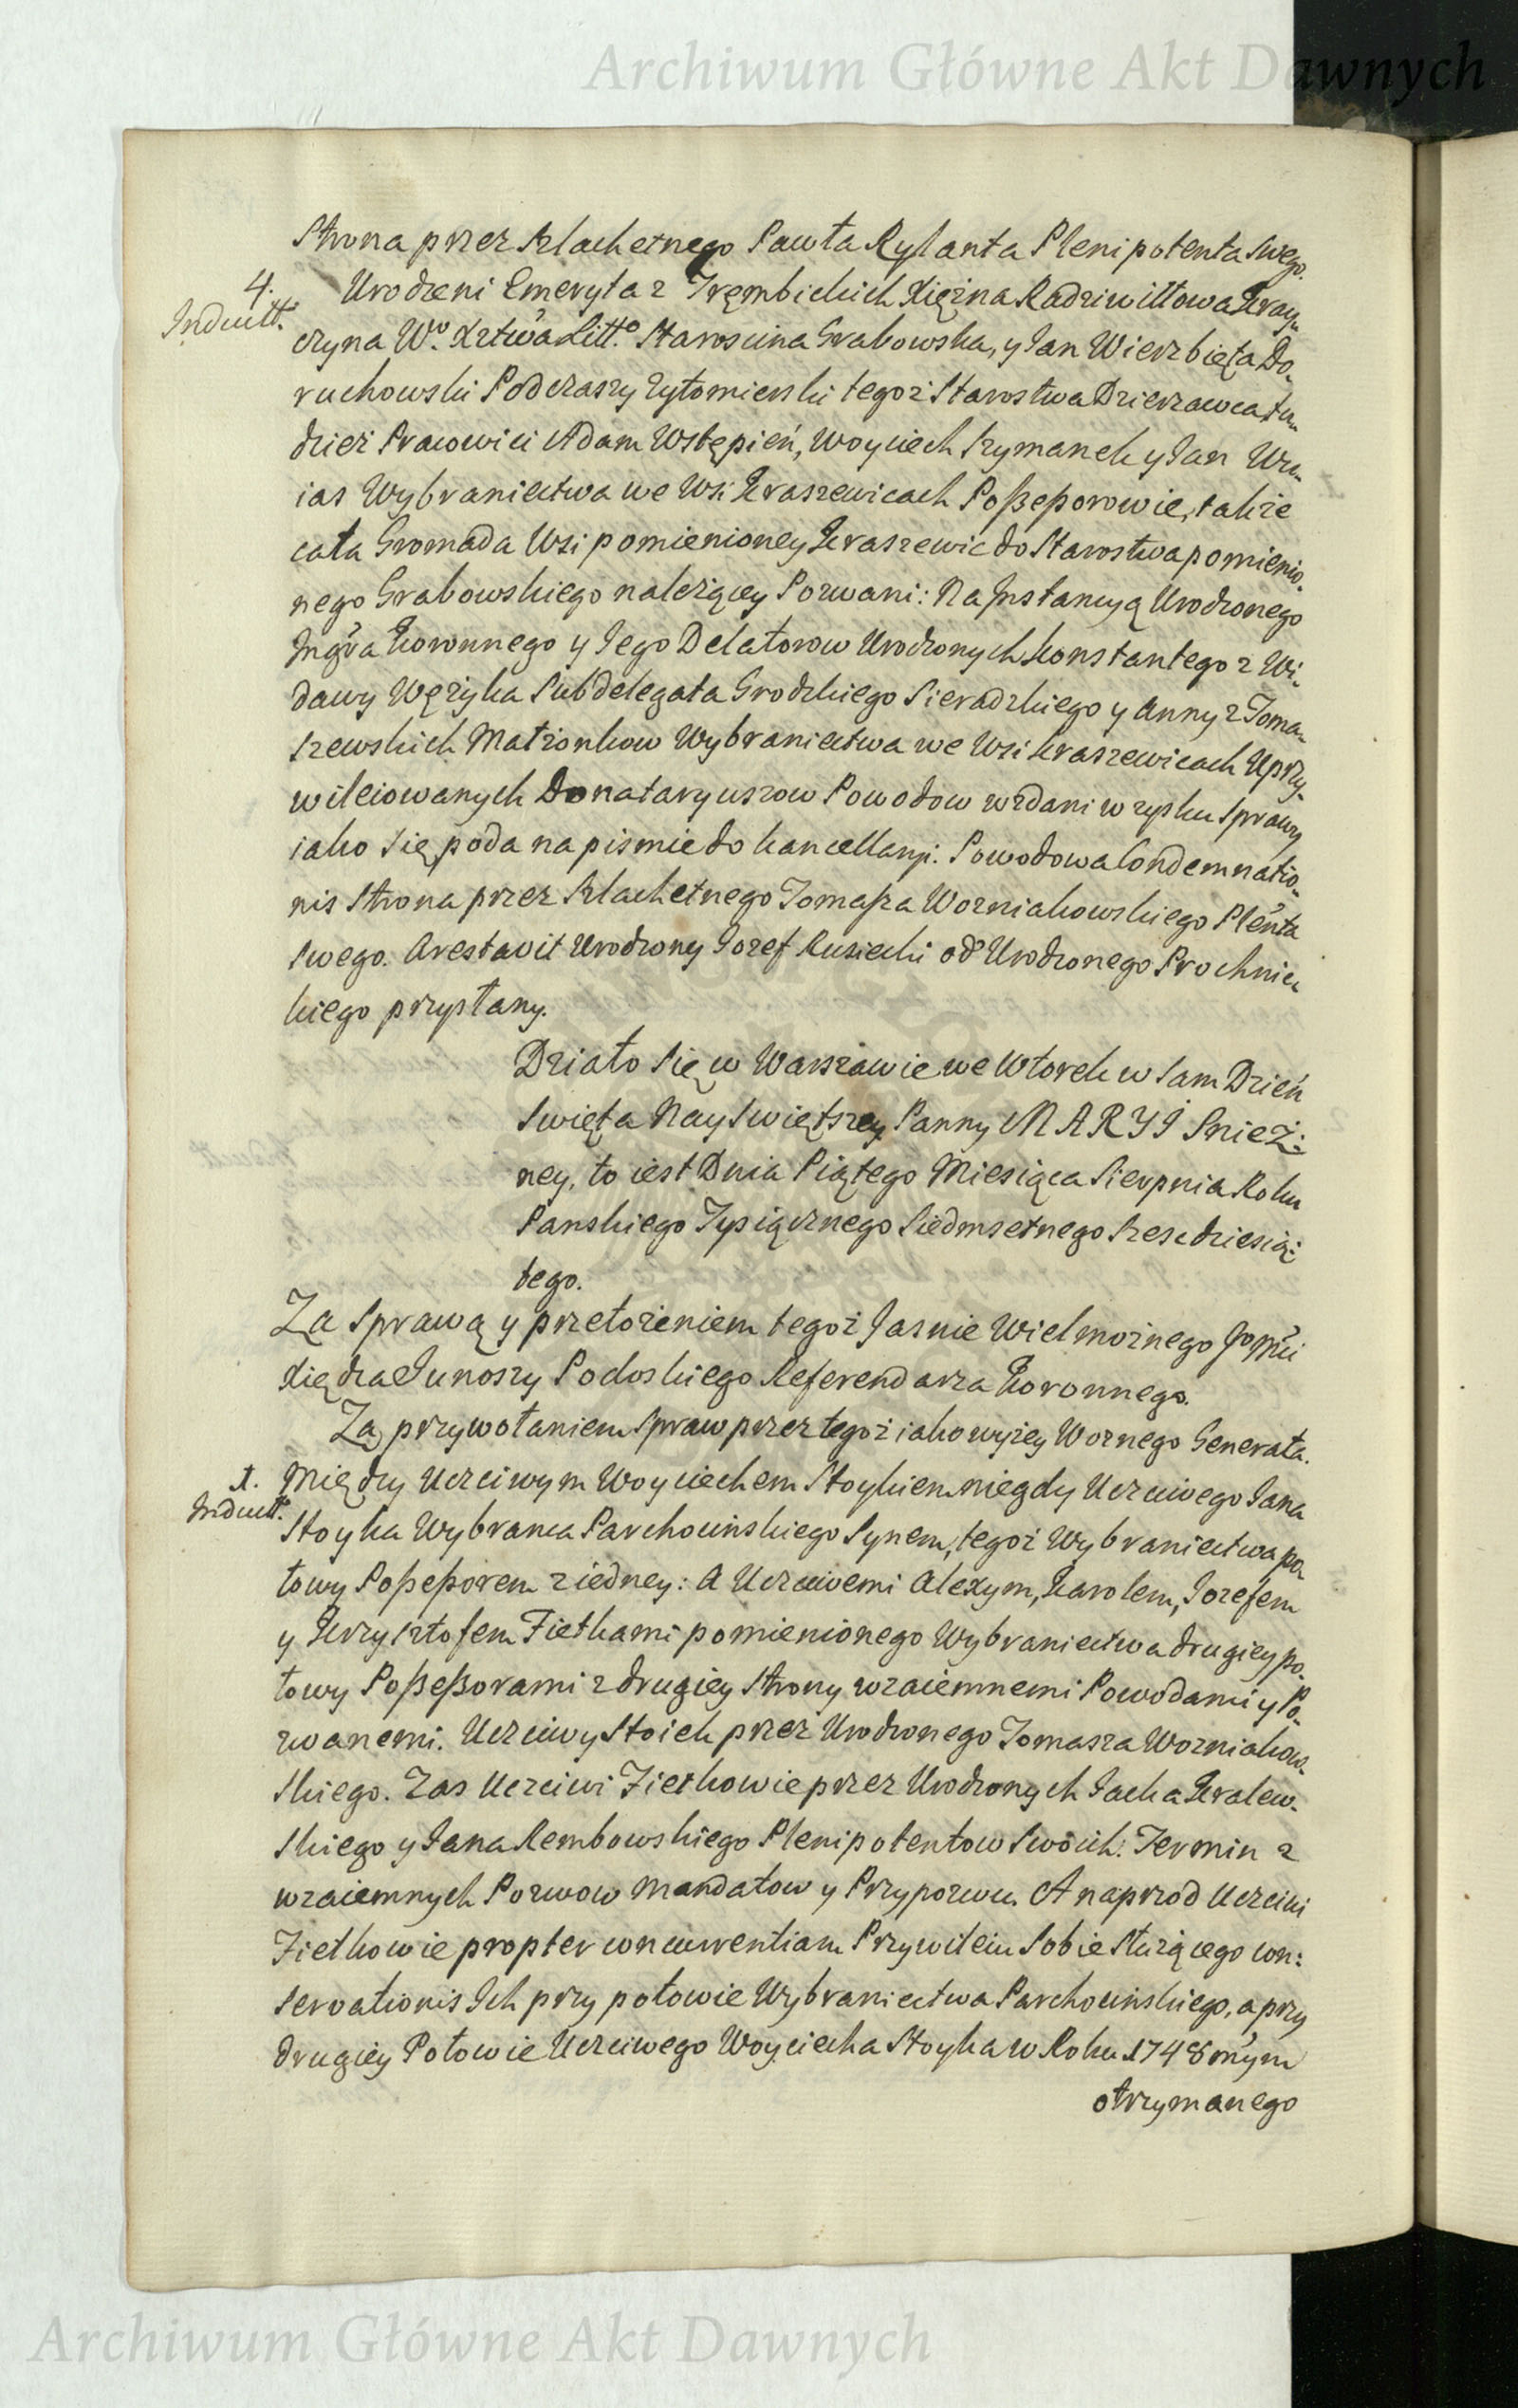 Archiwum Główne Akt Dawnych
Strona przez Szlachetnego Pawła Rylanta Plenipotenta swego.
4. Urodzeni Emeryta z Trębickich Xiężna Radziwiłłowa Kray„
Indultt. czyna Wo. Xtwa Litto. Staroscina Grabowska, y Jan Wierzbięta Do„
ruchowski Podczaszy Zytomierski tegoż Starostwa Dzierzawca tu„
dzież Pracowici Adam Wstępień, Woyciech Szymanek y Jan Wu„
ias Wybraniectwa we Wsi Kraszewicach Poßeßorowie, także
cała Gromada Wsi pomienioney Kraszewic do Starostwa pomienio„
nego Grabowskiego należący Pozwani: Na Instancyą Urodzonego
Ingra Koronnego y Jego Delatorow Urodzonych Konstantego z Wi„
dawy Wężyka Subdelegata Grodzkiego Sieradzkiego y Anny z Toma„
szewskich Małżonkow Wybraniectwa we Wsi Kraszewicach Uprzy„
wileiowanych Donataryuszow Powodow wzdani w zysku sprawy
iako się poda na pismie do kancellaryi. Powodowa Condemnatio„
nis Strona przez Szlachetnego Tomaßa Wozniakowskiego Plenta
swego. Arestavit Urodzony Jozef Rusiecki od Urodzonego Prochnic„
kiego przysłany.
Działo się w Warszawie we Wtorek w sam Dzień
Swięta Nayswiętszey Panny MARYI Snież:
ney, to iest Dnia Piątego Miesiąca Sierpnia Roku
Panskiego Tysiącznego Siedmsetnego Szescdziesią:
tego.
Za sprawą y przełożeniem tegoż Jasnie Wielmożnego Jgomsci
Xiędza Junoszy Podoskiego Referendarza Koronnego.
Za przywołaniem spraw przez tegoż iako wyżey Woznego Generała.
1. Między Uczciwym Woyciechem Stoykiem niegdy Uczciwego Jana
Indultt. Stoyka Wybranca Parchocinskiego Synem, tegoż Wybraniectwa po„
łowy Poßeßorem z iedney: A Uczciwemi Alexym, Karolem, Jozefem
y Krzysztofem Zietkami pomienionego Wybraniectwa drugiey po„
łowy Poßeßorami z drugiey Strony wzaiemnemi Powodami y Po„
zwanemi. Uczciwy Stoick przez Urodzonego Tomasza Wozniakow„
skiego. Zas Uczciwi Zietkowie przez Urodzonych Jacka Kralew„
skiego y Jana Rembowskiego Plenipotentow swoich. Termin z
wzaiemnych Pozwow Mandatow y Przypozwu. A naprzod Uczciwi
Zietkowie propter concurrentiam Przywileiu Sobie służącego con:
servationis Ich przy połowie Wybraniectwa Parchocinskiego, a przy
drugiey Połowie Uczciwego Woyciecha Stoyka w Roku 1748mym
otrzymanego
Archiwum Główne Akt Dawnych